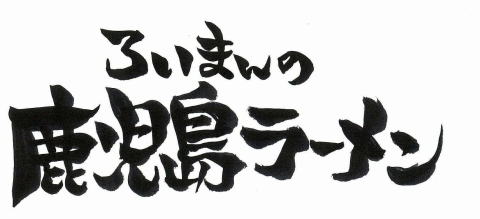 ろいまんの
鹿児島ラーメン